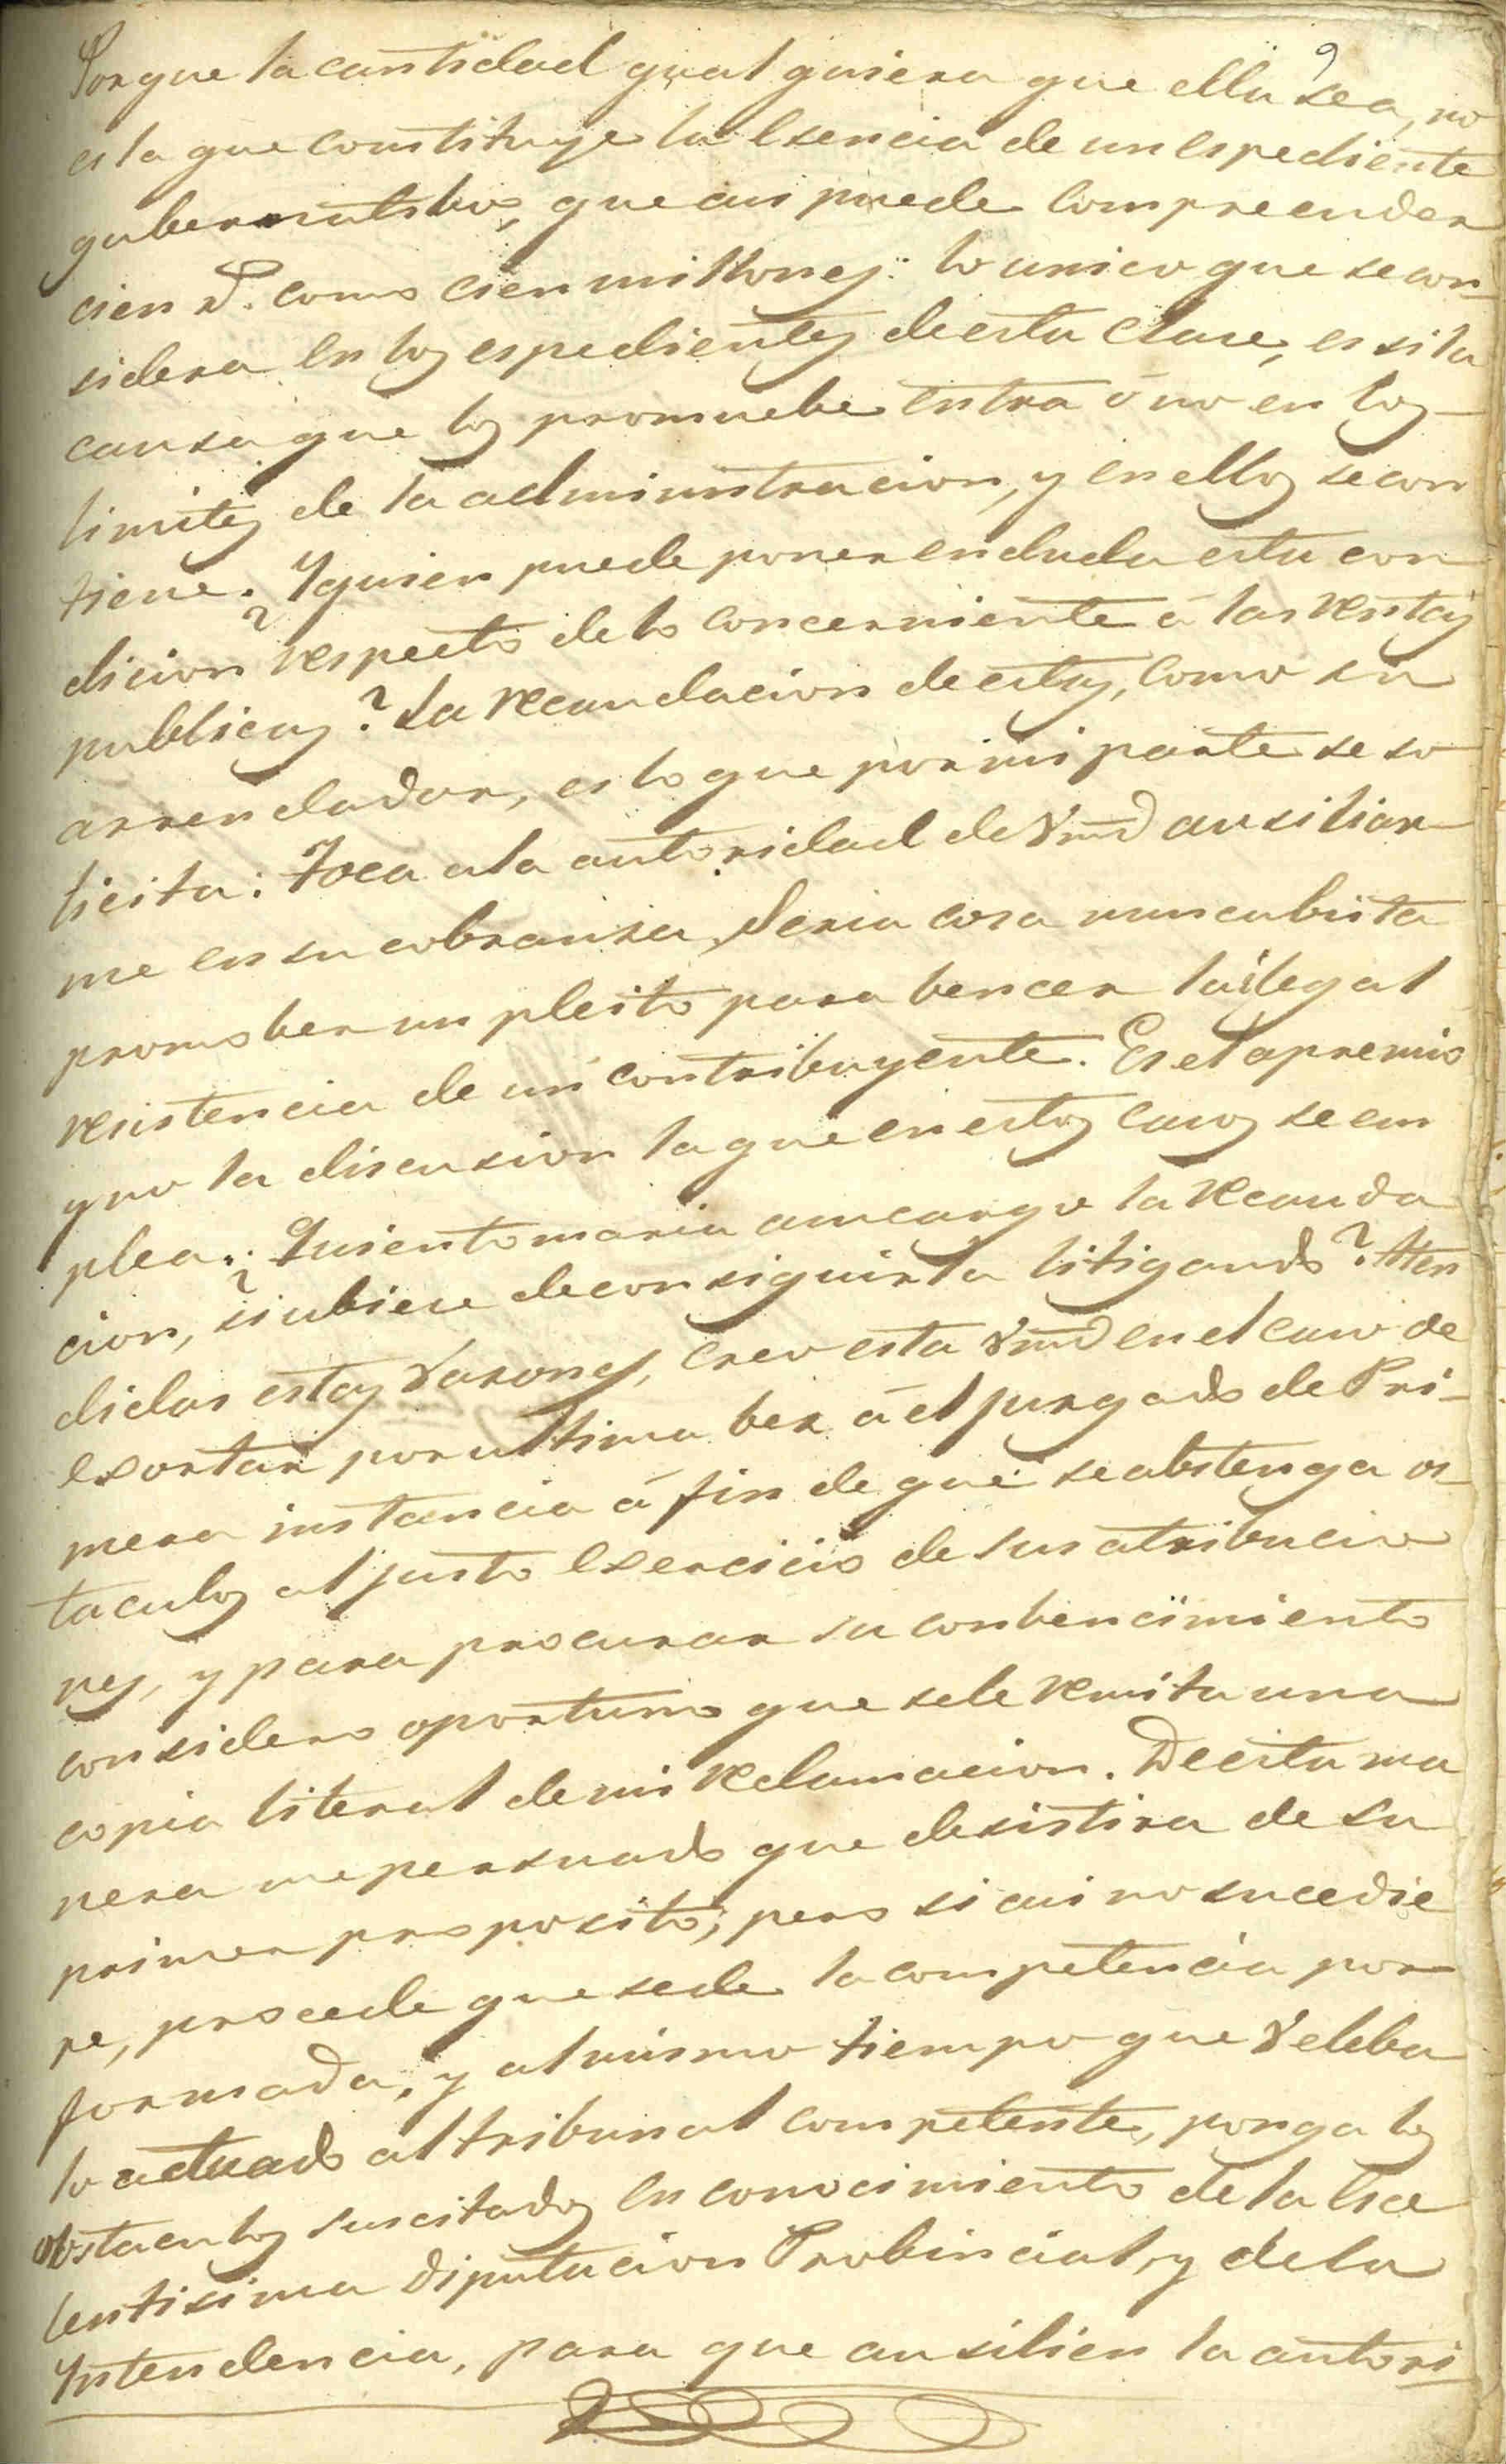 9
Porque la cantidad qual quiera que ella sea, no
es la que constituye la esencia de un espediente
gubernatibo, que asi puede compreender
cien r^s. como cien millones: lo unico que se con-
sidera en los espedientes de esta clase, es si la
causa que los promuebe entra ó no en los
limites de la administracion, y en ellos se con
tiene. Y quien puede poner en duda esta con
dicion respecto de lo concerniente á las rentas
publicas? La recaudacion de estas, como su
arrendador, es lo que por mi parte se so
licita: Toca a la autoridad de Vmd ausiliar
me en su cobranza, Seria cosa nunca bista
promober un pleito para bencer la ilegal
resistencia de un contribuyente. Es el apremio
y no la discusion la que en estos casos se em
plea. ¿Quien tomaria a su cargo la recauda
cion, si ubiese de conseguirla litigando? Aten
didas estas rasones, creo esta Vmd en el caso de
exortar por ultima bez á el juzgado de Pri-
mera instancia á fin de que se abstenga os-
taculos al justo exercicio de sus atribucio
nes, y para procurar su conbencimiento
considero oportuno que se le remita una
copia literal de mi reclamacion. De esta ma
nera me persuado que desistira de su
primer proposito; pero si asi no sucedie
re, procede que se de la competencia por
formada, y al mismo tiempo que Vd eleba
lo actuado al tribunal competente, ponga los
obstaculos suscitados en conocimiento de la Esce
lentisima Diputacion Probincial, y de la
Intendencia, para que ausilien la autori